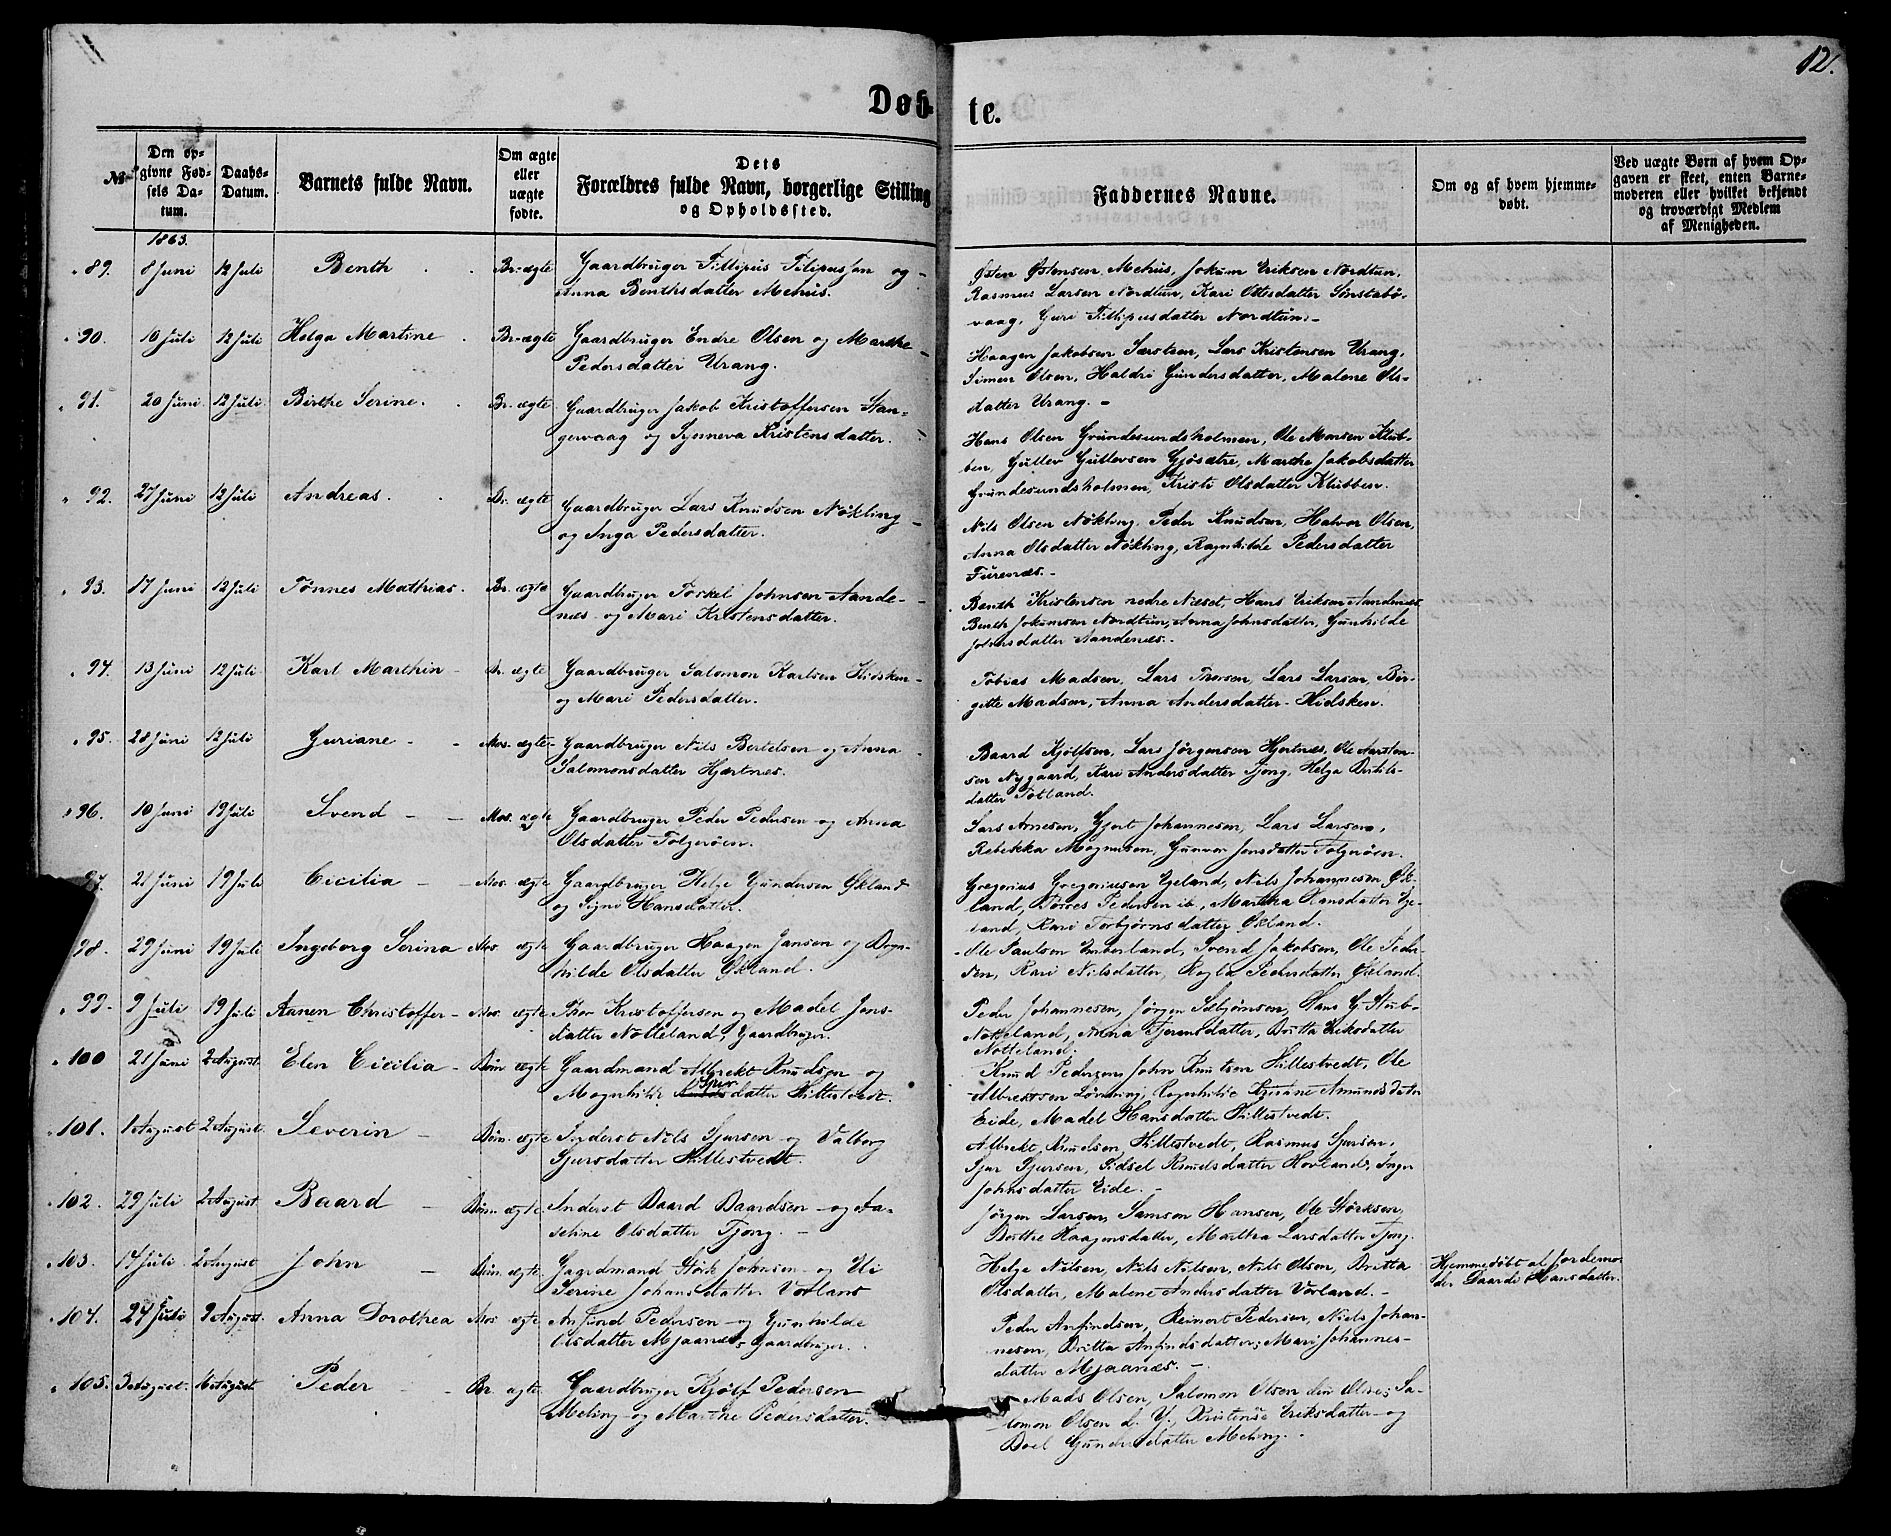 12.
Døb- te.
No
Den op-
givne Fød-
sels Da-
tum.
Daabs-
Datum.
Barnets fulde Navn.
Om ægte
eller
uægte
fødte.
Dets
Forældres fulde Navn, borgerlige Stilling
og Opholdssted.
Faddernes Navne.
Om og af hvem hjemme-
døbt.
Ved uægte Børn af hvem Op-
gaven er skeet, enten Barne-
moderen eller hvilket bekjendt
og troværdigt Medlem
af Menigheden.
1863.
89. 8 Juni 12 Juli Benth Br. ægte Gaardbruger Fillipus Filipussen og
Anna Benthsdatter Mehus.
Østen Østensen Mehus, Jokum Eriksen Nordtun,
Rasmus Larsen Nordtun, Kari Olsdatter Sønstabø-
vaag, Guri Fillipusdatter Nordtun.
90. 10 Juli 12 Juli Helga Martine Br. ægte Gaardbruger Endre Olsen og Marthe
Pedersdatter Urang.
Haagen Jakobsen Sørstrøn, Lars Kristensen Urang,
Simen Olsen, Haldri Gundersdatter, Malene Ols-
datter Urang.
91. 20 Juni 12 Juli Birthe Serine. Br. ægte Gaardbruger Jakob Kristoffersen Stan-
gervaag og Synneva Kristensdatter.
Hans Olsen Grundesundsholmen, Ole Monsen Klub-
ben, Gullev Gullevsen Gjøsætre, Marthe Jakobsdatter
Grundesundsholmen, Kristi Olsdatter Klubben.
92. 27 Juni 12 Juli Andreas. Br. ægte Gaardbruger Lars Knudsen Nøkling
og Inga Pedersdatter.
Nils Olsen Nøkling, Peder Knudsen, Halvor Olsen,
Anna Olsdatter Nøkling, Ragnhilde Pedersdatter
Furenæs.
93. 17 Juni 12 Juli Tønnes Mathias. Br. ægte Gaardbruger Torkel Johnsen Aande-
næs og Mari Kristensdatter.
Benth Kristensen nedre Næset, Hans Eriksen Aandenæs
Benth Jokumsen Nordtun, Anna Johnsdatter, Gunhilde
Johnsdatter Aandenæs.
94. 13 Juni 12 Juli Karl Marthin Br. ægte Gaardbruger Salomon Karlsen Hidsken
og Mari Pedersdatter.
Tobias Madsen, Lars Thorsen, Lars Larsen, Bir-
gitte Madsen, Anna Andersdatter Hidsken.
95. 28 Juni 12 Juli Guriane Mos. ægte Gaardbruger Nils Bertelsen og Anna
Salomonsdatter Hjærtnes.
Baard Kjølfsen, Lars Jørgensen Hjertnes, Ole Aarsten-
sen Nygaard, Kari Andersdatter Fjong, Helga Bertils-
datter Totland.
96. 10 Juni 19 Juli Svend Mos. ægte Gaardbruger Peder Pedersen og Anna
Olsdatter Folgerøen.
Lars Arnesen, Gjert Johannesen, Lars Larsen,
Rebekka Magnusen, Gunvor Jensdatter Folgerøen.
97. 21 Juni 19 Juli Cicilia Mos. ægte Gaardbruger Helge Gundersen Økland
og Signi Hansdatter.
Gregorius Gregoriusen Egeland, Nils Johannesen Øk-
land, Torres Pedersen ib, Martha Hansdatter Ege-
land, Kari Torbjørnsdatter Økland.
98. 29 Juni 19 Juli Ingeborg Serina Mos. ægte Gaardbruger Haagen Jansen og Bryn-
hilde Olsdatter Økland.
Ole Paulsen Emberland, Svend Jakobsen, Ole Peder-
sen, Kari Nilsdatter, Ragla Pedersdatter Økland.
99. 9 Juli 19 Juli Aanen Christoffer Mos. ægte Thor Kristoffersen og Madel Jons-
datter Notteland, Gaardbruger.
Peder Johannesen, Jørgen Sæbjørnsen, Hans G. Stub
Notteland, Anna Fjerensdatter, Britta Eriksdatter
Notteland.
100 21 Juni 2 August. Elen Cicilia Bøm. ægte Gaardmand Albrekt Knudsen og
Sjur
Magnhild datter Hillestvedt.
Knud Pedersen, John Knutsen Hillestvedt, Ole
Albrektsen Løvning, Ragnhilde Kjersine Amundsdatter
Eide, Madel Hansdatter Hillestvedt.
101. 1 August 2 August. Severin Bøm. ægte Inderst Nils Sjursen og Valborg
Sjursdatter Hillestvedt.
Albrekt Knudsen Hillestvedt, Rasmus Sjursen,
Sjur Sjursen, Sidsel Knudsdatter Hovland, Inger
Johnsdatter Eide.
102. 29 Juli 2 August Baard Bøm. ægte Inderst Baard Baardsen og Ja-
sehine Olsdatter Fjong.
Jørgen Larsen, Samson Hansen, Ole Størksen,
Dorthe Haagensdatter, Martha Larsdatter Fjong.
103. 14 Juli. 2 August John Bøm. ægte Gaardmand Størk Johnsen og Eli
Serine Johansdatter Vorland
Helge Nilsen, Nils Nilsen, Nils Olson, Britta
Olsdatter, Malene Andersdatter Vorland.
Hjemmedøbt af Jordemo-
der Baardi Hansdatter.
104. 24 Juli 9 August. Anna Dorothea Mos ægte Anfind Pedersen og Gunhilde
Olsdatter Mjaanæs, Gaardbruger.
Peder Anfindsen, Reinert Pedersen, Niels Johan-
nesen, Britta Anfindsdatter, Mari Johannes-
datter Mjaanæs.
105. 3 August. 16 August. Peder Br ægte. Gaardbruger Kjølf Pedersen
Meling og Marthe Pedersdatter.
Mads Olsen, Salomon Olsen den Ældre, Sa-
lomon Olsen d. Y., Kristense Eriksdatter og
Boel Gundersdatter Meling.